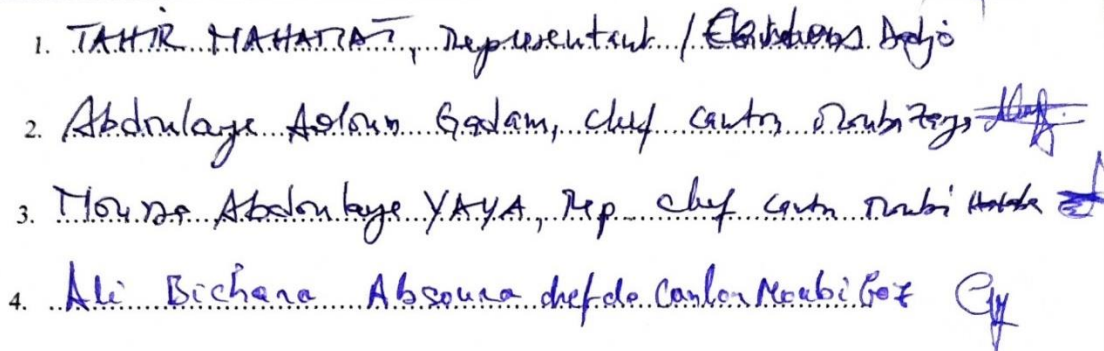 1. TAHIR MAHAMAT, Representant / Dadjo
2. Abdoulaye Gadam, chef canton Moubi Zaga
3. Moussa Abdoulaye YAYA, Rep chef canton Moubi Hadaba
4. Ali Bichara Absoura chef de Canton Moubi Goz